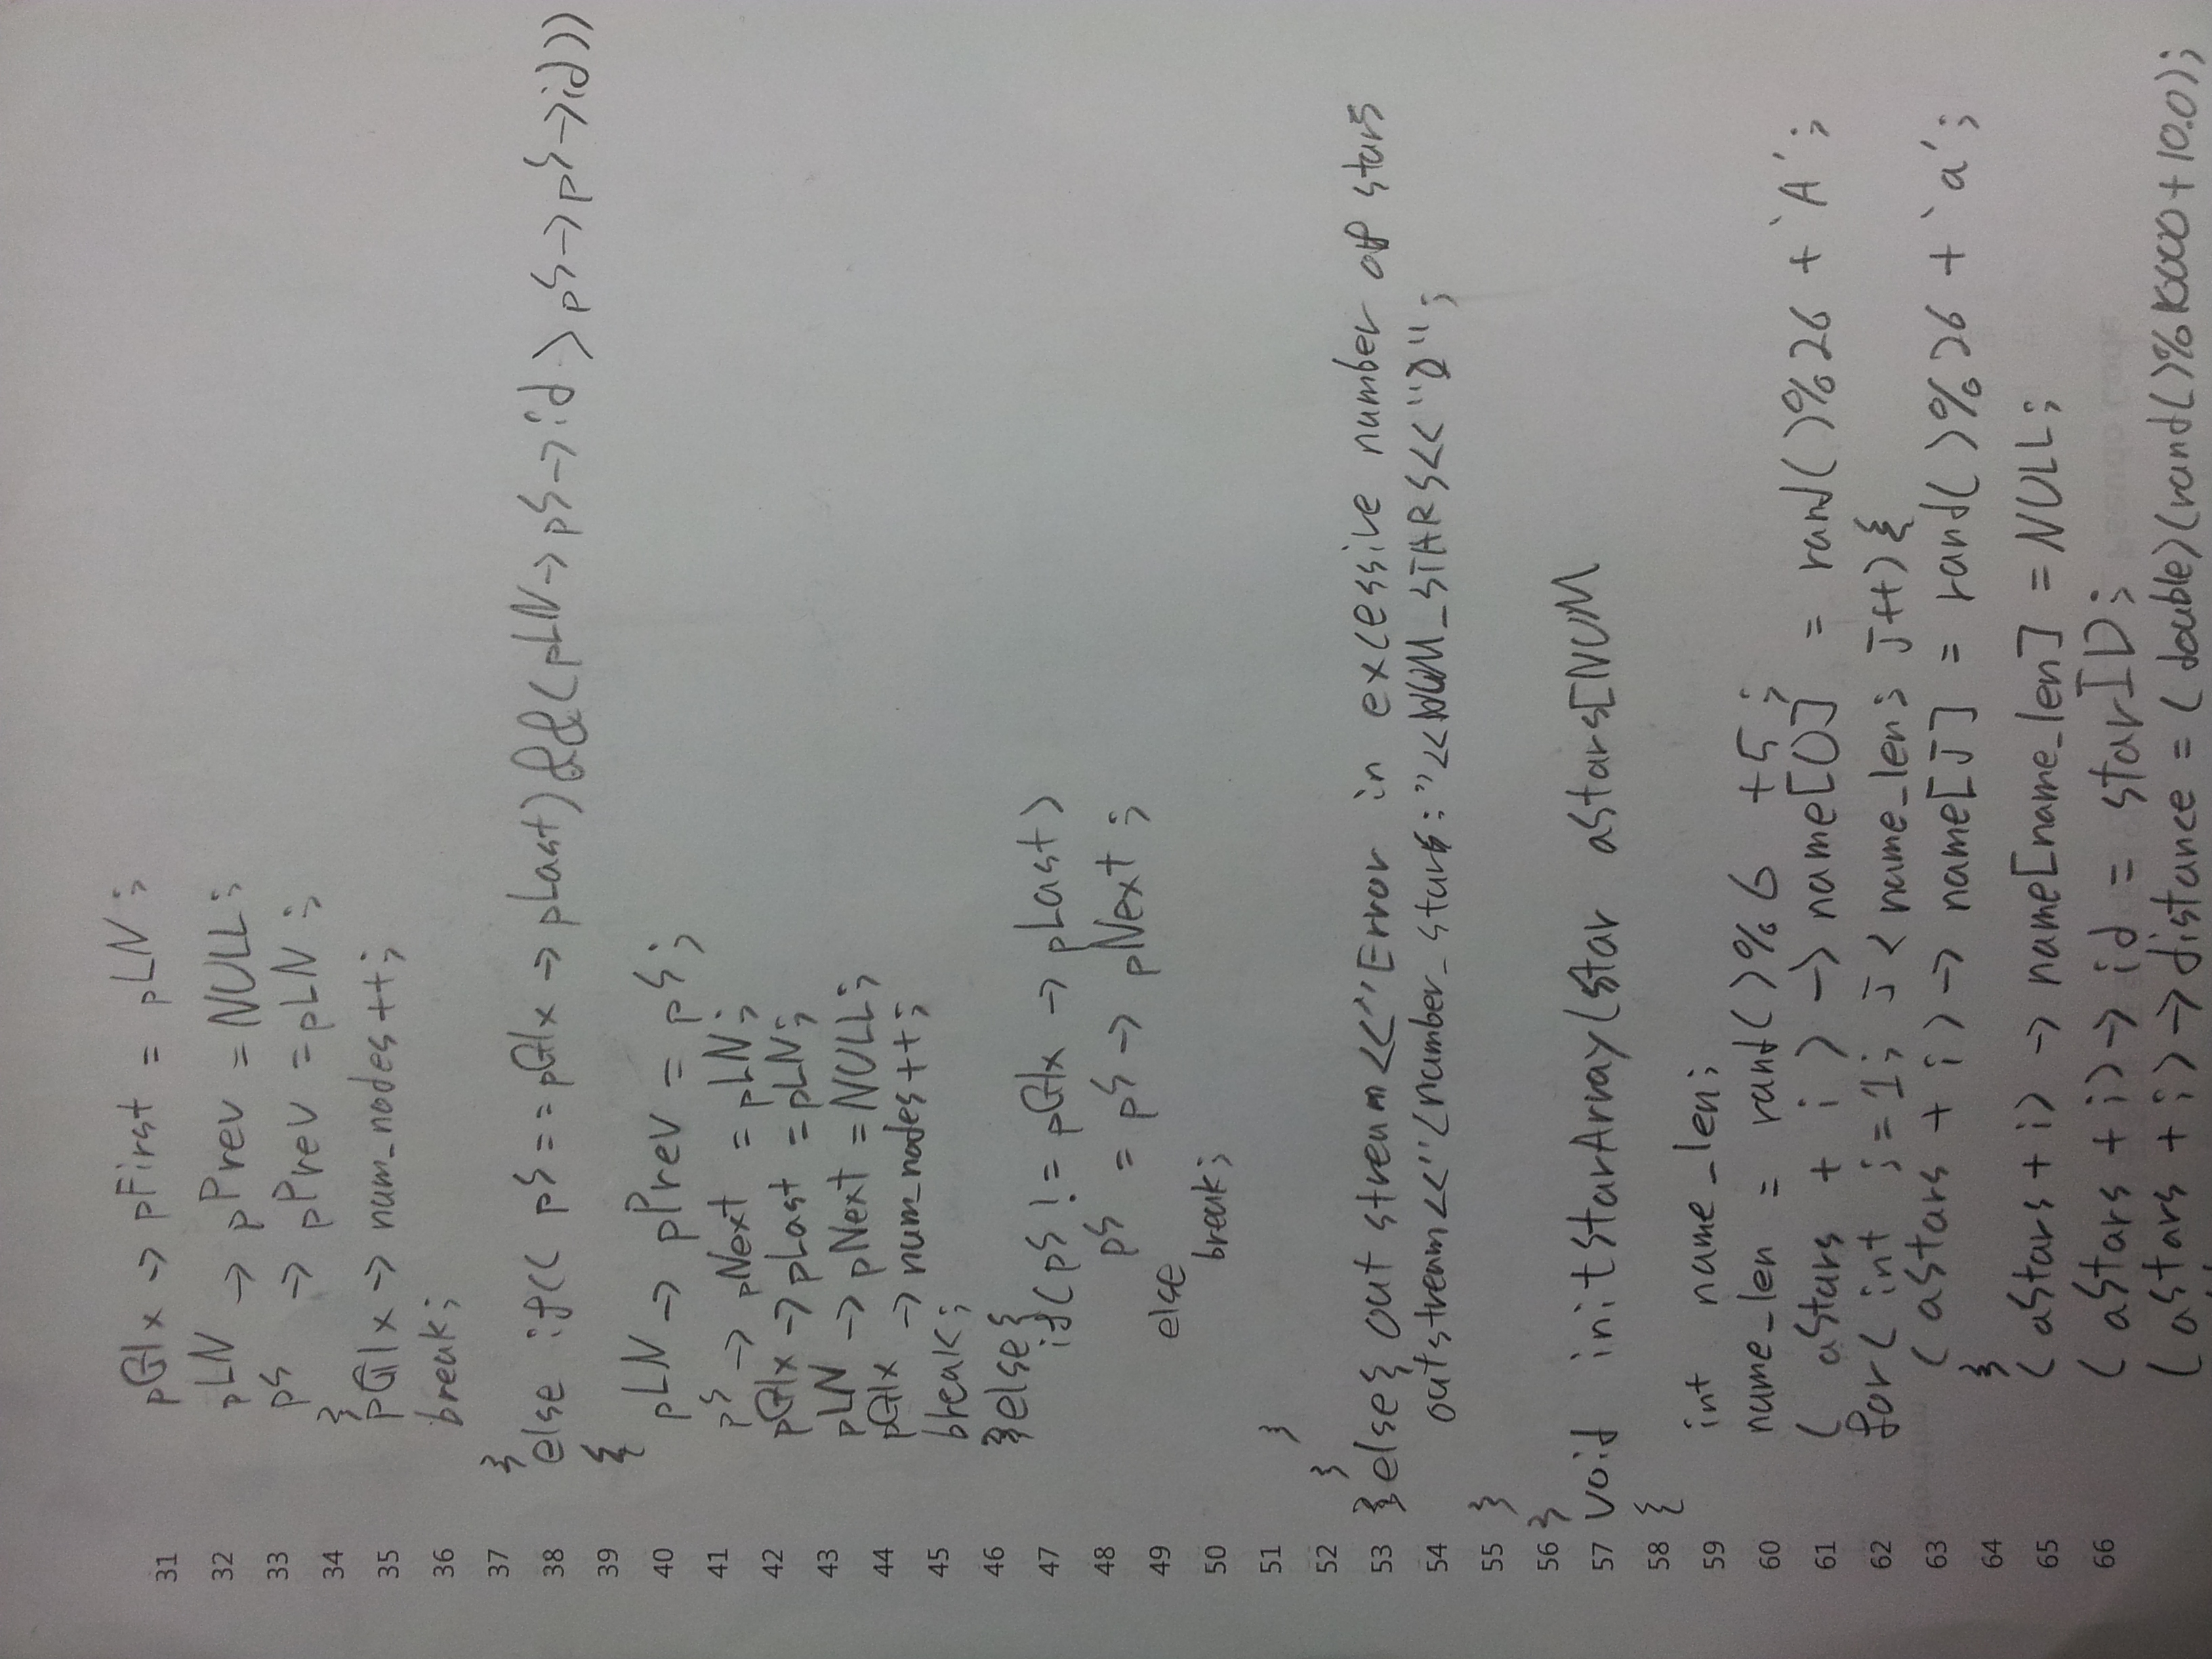 31 pGlx -> pFirst = pLN;
32 pLN -> pPrev = NULL;
33 pS -> pPrev = pLN;
34 }
35 pGlx -> num_nodes++;
36 break;
37 }
38 else if(( pS == pGlx -> pLast)&&(pLN -> pS -> id > pS -> pS -> id))
39 {
40 pLN -> pPrev = pS;
41 pS -> pNext = pLN;
42 pGlx -> pLast = pLN;
43 pLN -> pNext = NULL;
44 pGlx -> num_nodes++;
45 break;
46 }else{
47 if(pS != pGlx -> pLast)
48 pS = pS -> pNext;
49 else
50 break;
51 }
52 }
53 }else{ out stream<<"Error in excessive number of stars
54 outstream<<"(number_star:"<<NUM_STARS<<")";
55 }
56 }
57 void initStarArray(Star aStars[NUM
58 {
59 int name_len;
60 name_len = rand()%6 +5;
61 ( aStars + i) -> name[0] = rand()%26 + 'A';
62 for( int j=1; J < name_len; J++){
63 ( aStars + i) -> name[J] = rand()%26 + 'a';
64 }
65 ( aStars + i) -> name[name_len] = NULL;
66 ( aStars + i) -> id = starID;
( aStars + i) -> distance = (double)(rand()%1000 + 10.0);